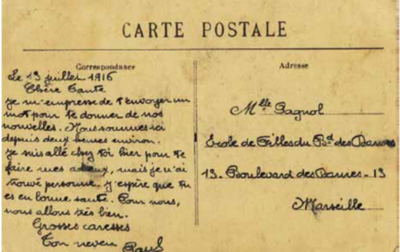 CARTE POSTALE
Correspondance
Le 13 juillet 1916
Chère Tante
Je m'empresse de t'envoyer un
mot pour te donner de nos
nouvelles. Nous sommes ici
depuis deux heures environ.
Je suis allé chez toi hier pour te
faire mes adieux, mais je n'ai
trouvé personne. J'espère que tu
es en bonne santé. Pour nous,
nous allons très bien.
Grosses caresses
Ton neveu
Paul
Adresse
Mlle Pagnol
Ecole de Filles du Bd des Dames
13 - Boulevard des Dames - 13
Marseille